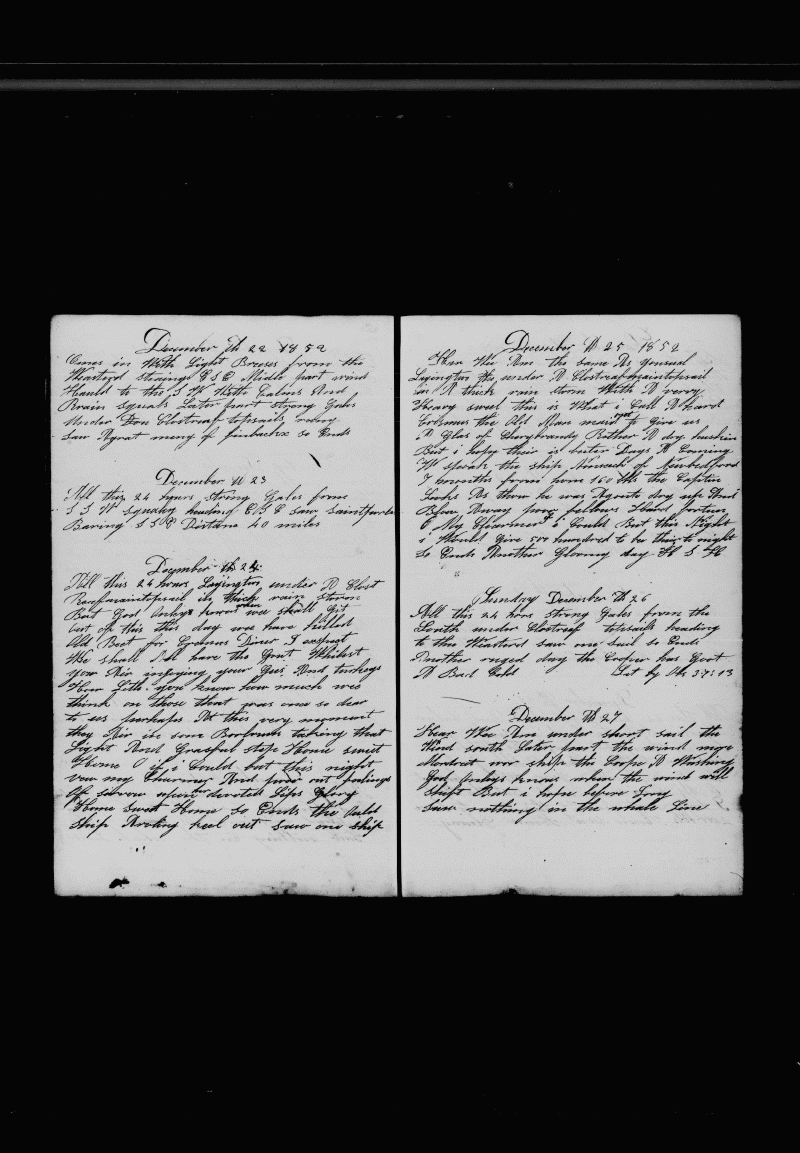 December th 22 1852
Comes in With Light Breses from the
Weasterd stearing ESE Midle part wind
Hauld to the S W With Calms And
Rain squals Later part strong Gales
Under Dou Clostreaf topsails
Saw Agrat meny of finbacks so Ends
December th 23
All this 24 hours strong Gales from
S S W squaley heading E saw saint
Baring S S E Distanc 40 miles
December th 24
All this 24 hours Layington under A Clost
Reafmaintopsail in thick rain storm
But God Onlays knows when we shall Git
out of this this day we have killed
Old Beet for Crismus Diner I exspect
We shall All have the Gout Whilest
you Air injoying your Gees And turkeys
How Litle you know how much wee
think on those that was once so dear
to us perhaps At this very moment
they Air in som Borlroom taking that
Light And Grasful step Home sweet
Home O if i Could but this night
vew my Charmer And power out feelings
Of sorrow upon devoted Lips Glory
Home sweet Home so Ends the Ould
ship Arolling heel out saw one ship
December th 25 1852
Hear We Arn the same As yousual
Layington the under A Clostreaf maintopsail
in A thick rain storm With A verry
Heavy swell this is What i Call A Hard
Crismus the Old Man never yet to Give us
A Glas of Cherybrandy Rather A dry huskin
But i hope their is beter Days A Coming
W spoak the ship of Newbedford
7 months from home 160 bbls the Captin
Looks As thou he was Agoin to dry up And
Blow Away poor fellow Hard fortin
O My Charmer if i Could But this Night
i Would Give 500 hundred to be thair to night
So Ends Another Gloomy day
Sunday December th 26
All this 24 hors strong Gales from the
South under Clostreaf totsails heading
to the Weasterd saw one sail so Ends
Another ruged day the Cooper has Goot
A Bad Cold Lat by Obs 37:13
December th 27
Hear Wee Arn under short sail the
Wind south Later part the wind more
Moderat wor ship the Coopr A Washing
God Onlays knows when the wind will
shift But i hope before Long
saw nothing in the whale Line